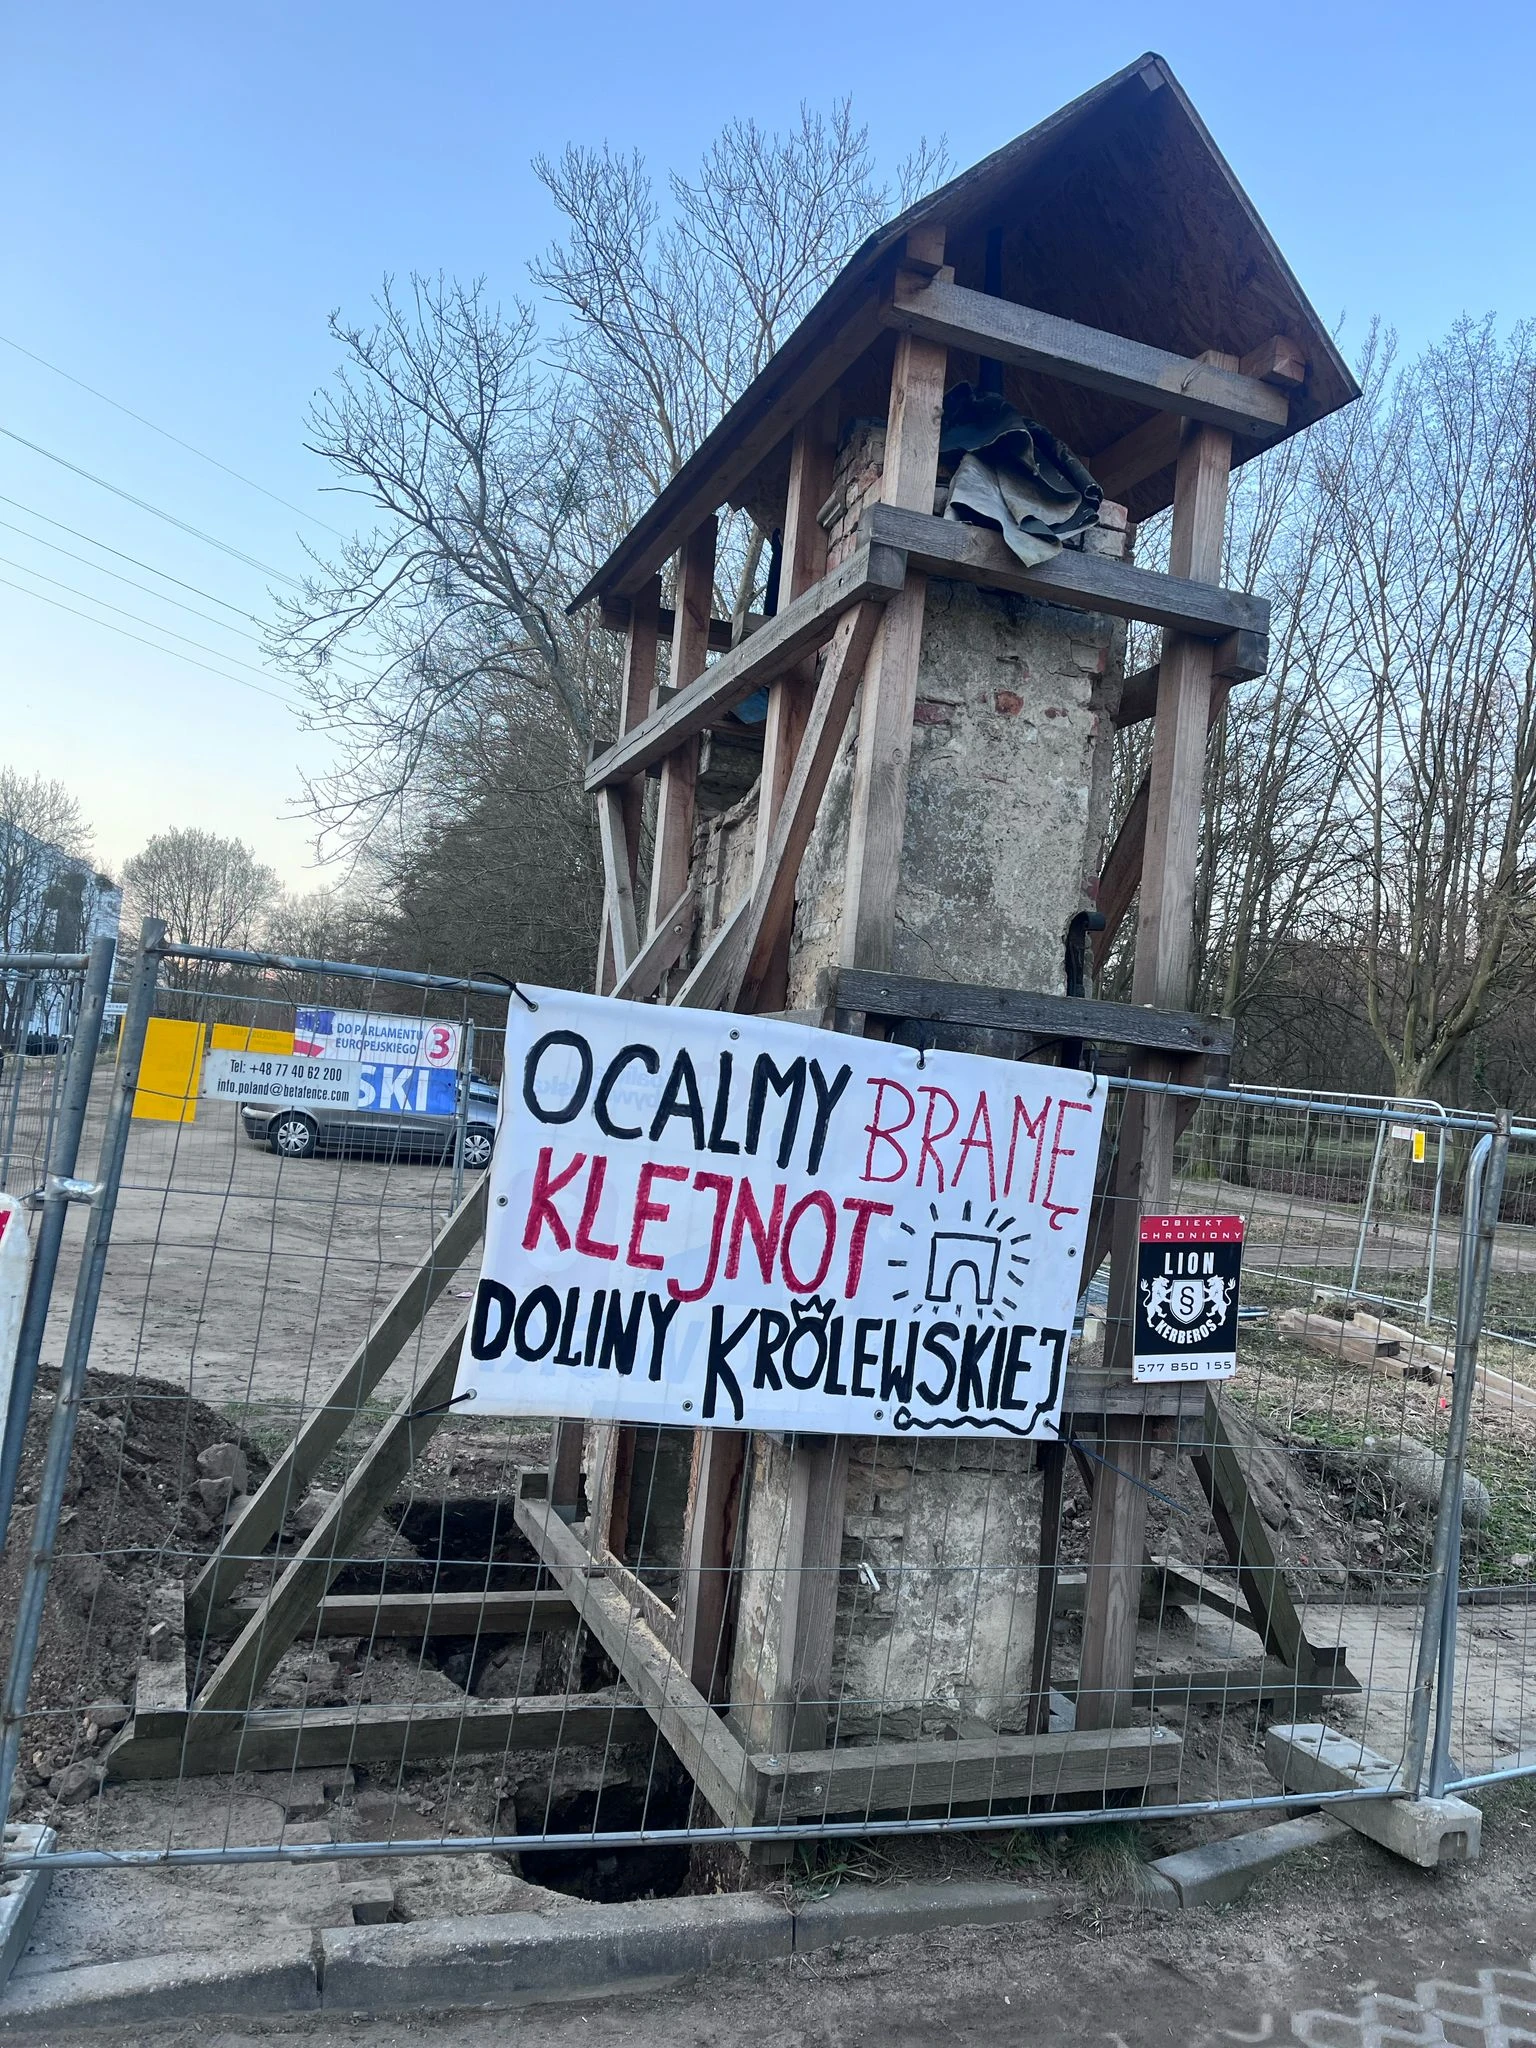 DO PARLAMENTU
EUROPEJSKIEGO
3
SKI
Tel: +48 77 40 62 200
info.poland@betafence.com
OCALMY BRAMĘ
KLEJNOT
DOLINY KRÓLEWSKIEJ
OBIEKT
CHRONIONY
LION
§
KERBEROS
577 850 155